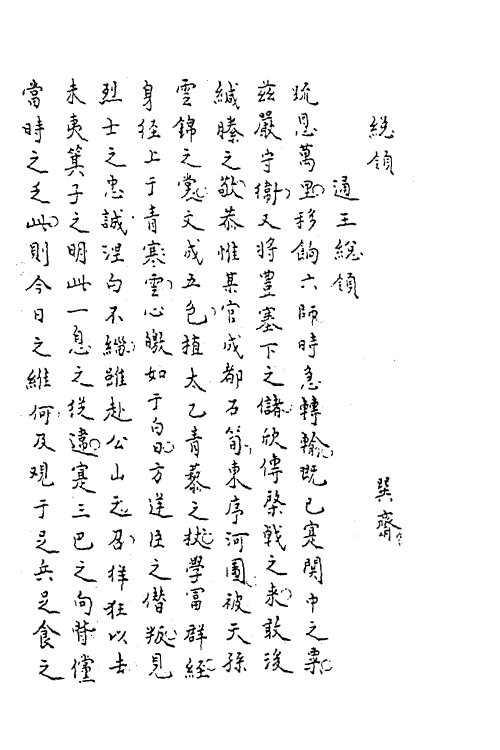 総領
通王総領　　巽齋
疏恩萬里移餉六師時急轉輸既已寔関中之粟
兹嚴守衛又將豊塞下之儲欣傳棨戟之来敢後
緘縢之敬恭惟某官成都石筍東序河圖被天孫
雲錦之裳文成五色植太乙青藜之杖學冨群經
身径上于青寒雲心皦如于白日方逆臣之僣叛見
烈士之忠誠涅白不緇雖赴公山之召佯狂以去
未夷箕子之明此一息之從違寔三巴之向背儻
當時之乏此則今日之維何及観于足兵足食之